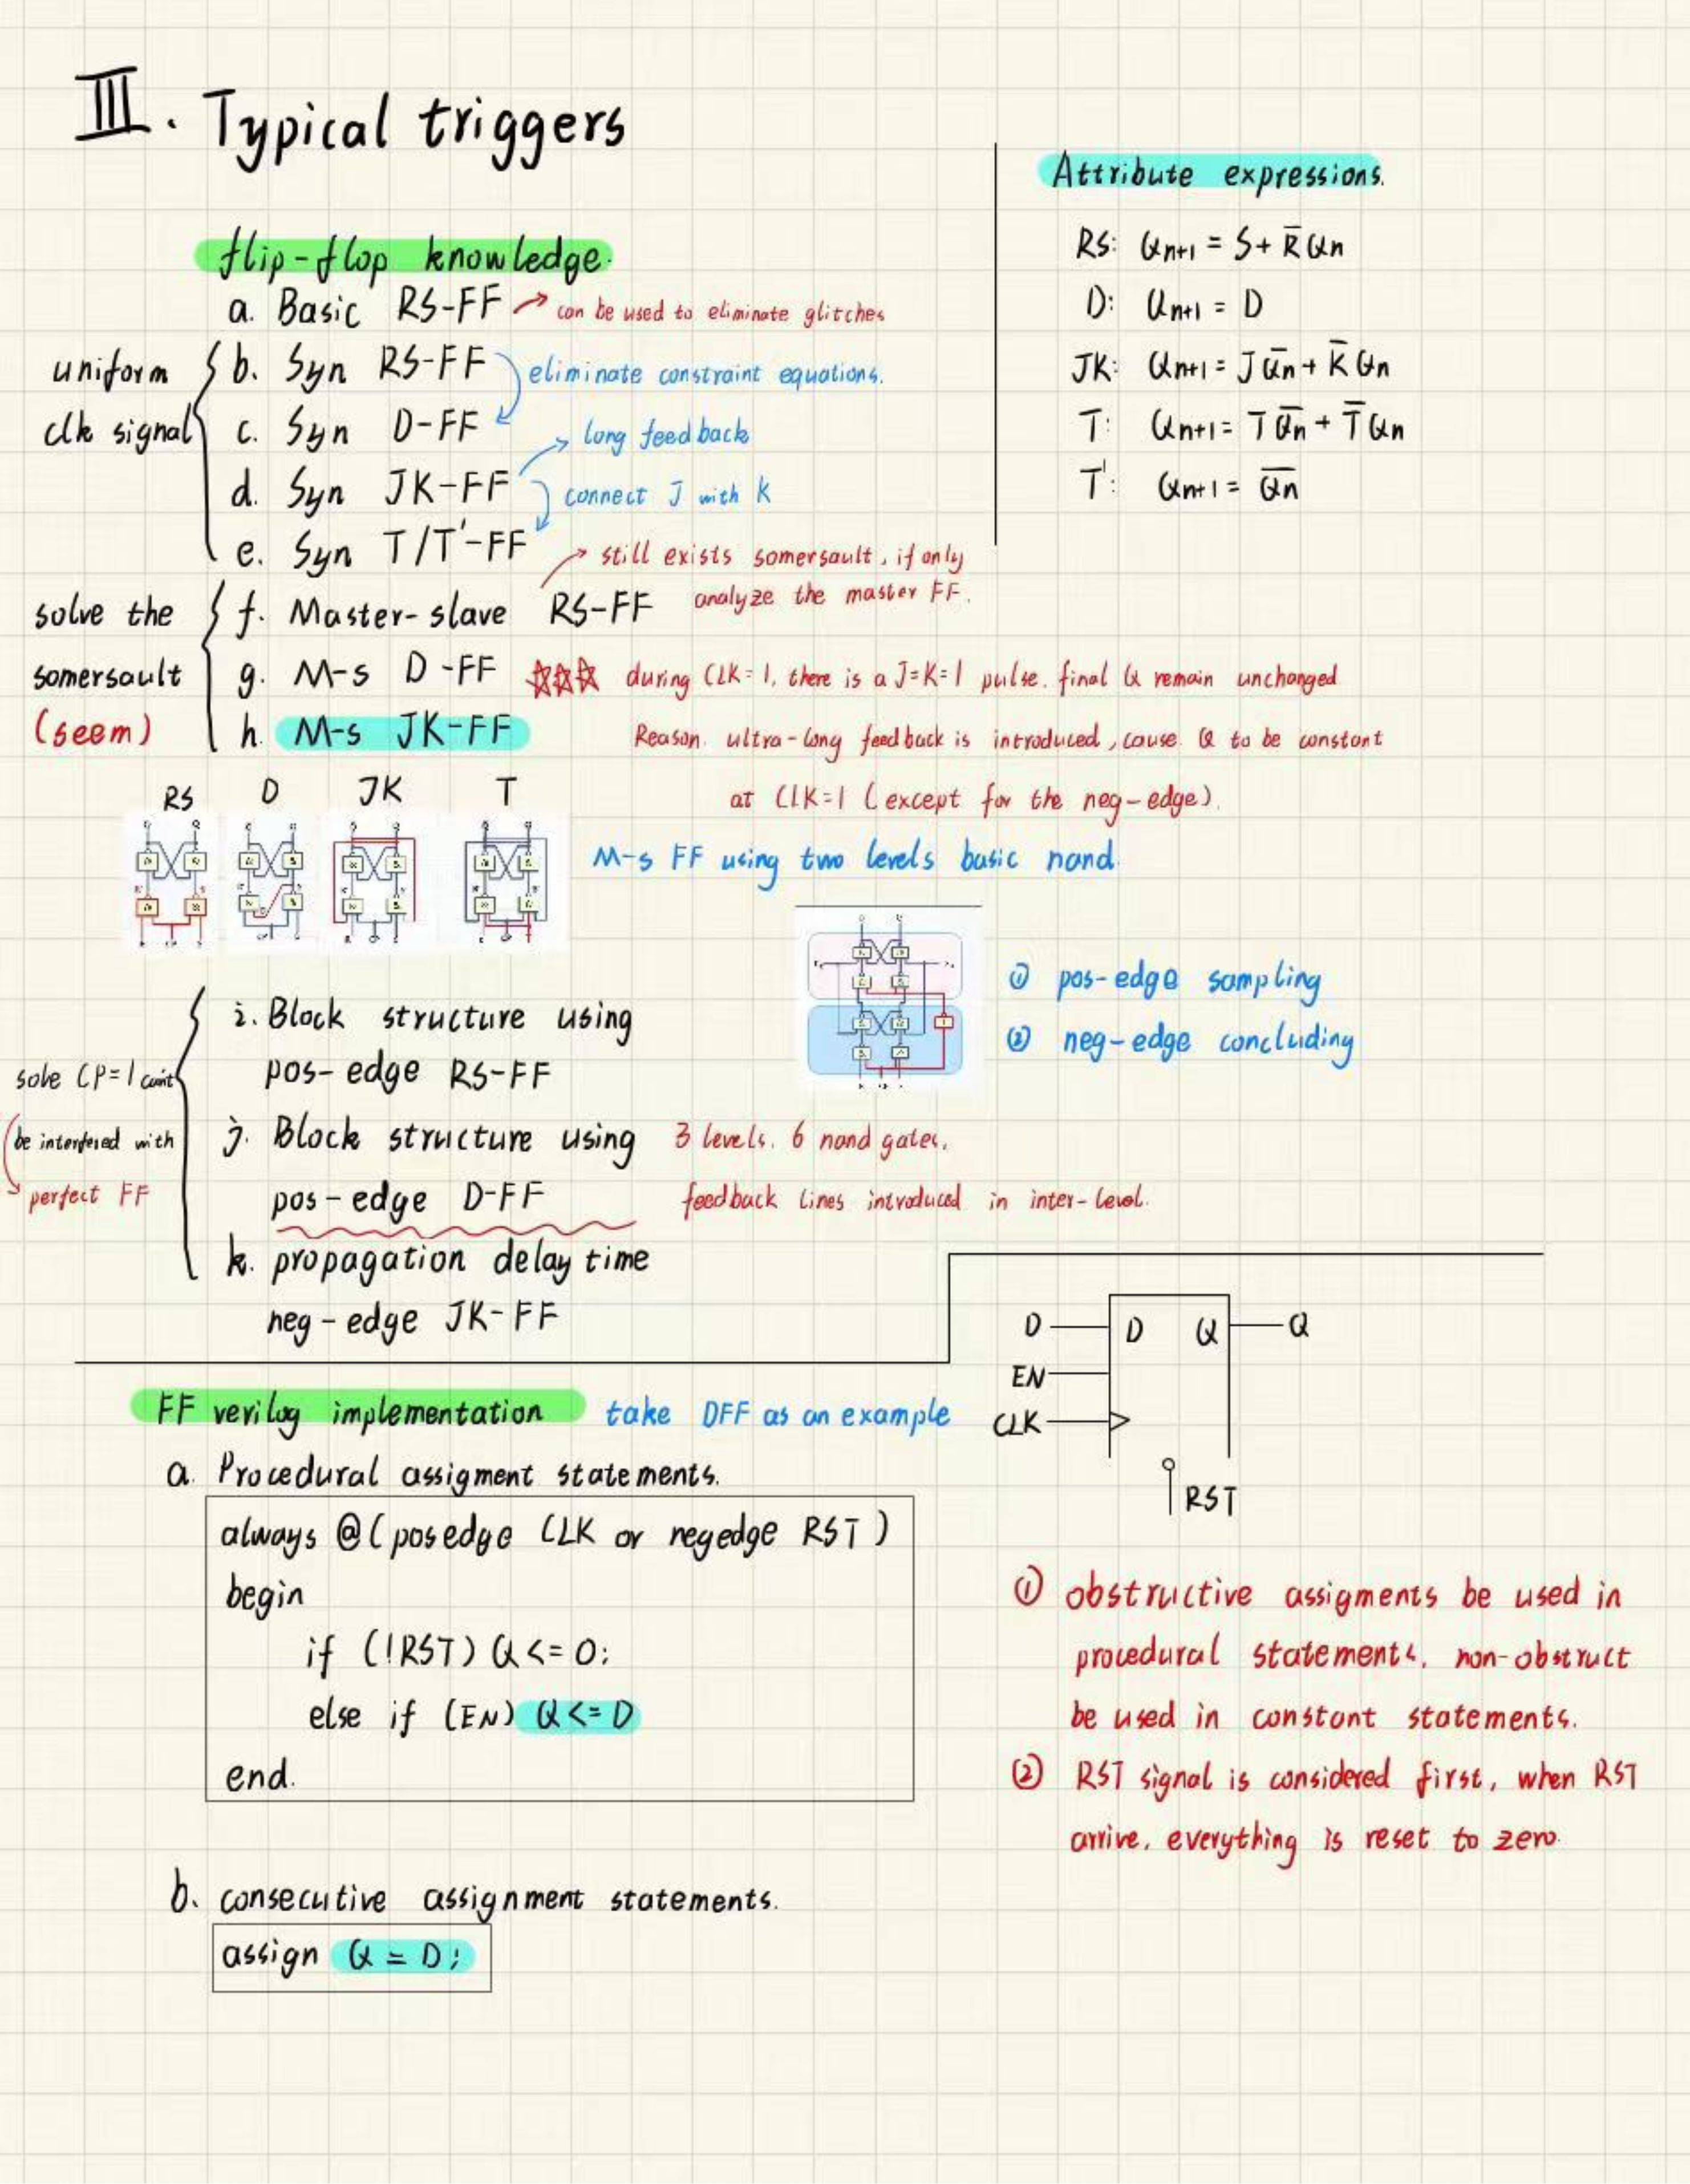 III. Typical triggers
Attribute expressions.
RS: Qn+1 = S + R̅Qn
D: Qn+1 = D
JK: Qn+1 = JQ̅n + K̅Qn
T: Qn+1 = TQ̅n + T̅Qn
T': Qn+1 = Q̅n
flip-flop knowledge.
a. Basic RS-FF → can be used to eliminate glitches
uniform
clk signal
b. Syn RS-FF
eliminate constraint equations.
c. Syn D-FF
long feedback
d. Syn JK-FF
connect J with K
e. Syn T/T'-FF
still exists somersault, if only
analyze the master FF.
solve the
somersault
(seem)
f. Master-slave RS-FF
g. M-s D-FF
☆☆☆ during CLK=1, there is a J=K=1 pulse. final Q remain unchanged
h. M-s JK-FF
Reason. ultra-long feedback is introduced, cause Q to be constant
at CLK=1 (except for the neg-edge).
RS D JK T
M-s FF using two levels basic nand.
① pos-edge sampling
② neg-edge concluding
solve CP=1
be interfered with
perfect FF
i. Block structure using
pos-edge RS-FF
j. Block structure using
pos-edge D-FF
3 levels. 6 nand gates.
feedback lines introduced in inter-level.
k. propagation delay time
neg-edge JK-FF
D D Q Q
EN
CLK
RST
FF verilog implementation take DFF as an example
a. Procedural assigment statements.
always @(posedge CLK or negedge RST)
begin
if (!RST) Q <= 0;
else if (EN) Q <= D
end.
① obstructive assigments be used in
procedural statements, non-obstruct
be used in constant statements.
② RST signal is considered first, when RST
arrive, everything is reset to zero.
b. consecutive assignment statements.
assign Q = D;